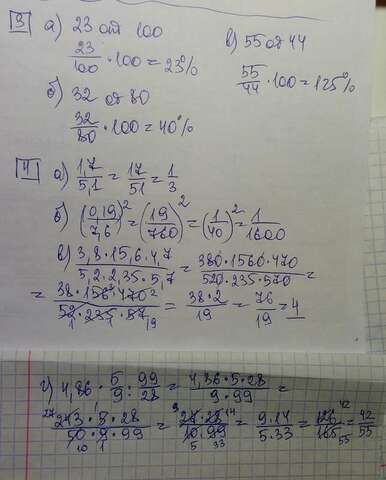 3 а) 23 от 100
23/100 · 100 = 23%
б) 32 от 80
32/80 · 100 = 40%
в) 55 от 44
55/44 · 100 = 125%
4 а) 1,7/5,1 = 17/51 = 1/3
б) (0,19/7,6)² = (19/760)² = (1/40)² = 1/1600
в) 3,8·15,6·4,7/5,2·2,35·5,7 = 380·1560·470/520·235·570 =
= 38·156³·470²/52₁·235₁·57₁₉ = 38·2/19 = 76/19 = 4
г) 4,86 · 5/9 : 99/28 = 4,86·5·28/9·99 =
27 243·5·28/50·9·99 10 1 = 9 27·28 14/10·99 5 33 = 9·14/5·33 = 126 42/165 55 = 42/55